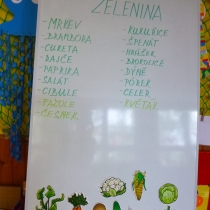 ZELENINA
-MRKEV
-BRAMBORA
-CUKETA
-RAJČE
-PAPRIKA
-SALÁT
-CIBULE
-FAZOLE
-ČESNEK
-KUKUŘICE
-ŠPENÁT
-HRÁŠEK
-BROKOLICE
-DÝNĚ
-PÓREK
-CELER
-KVĚTÁK